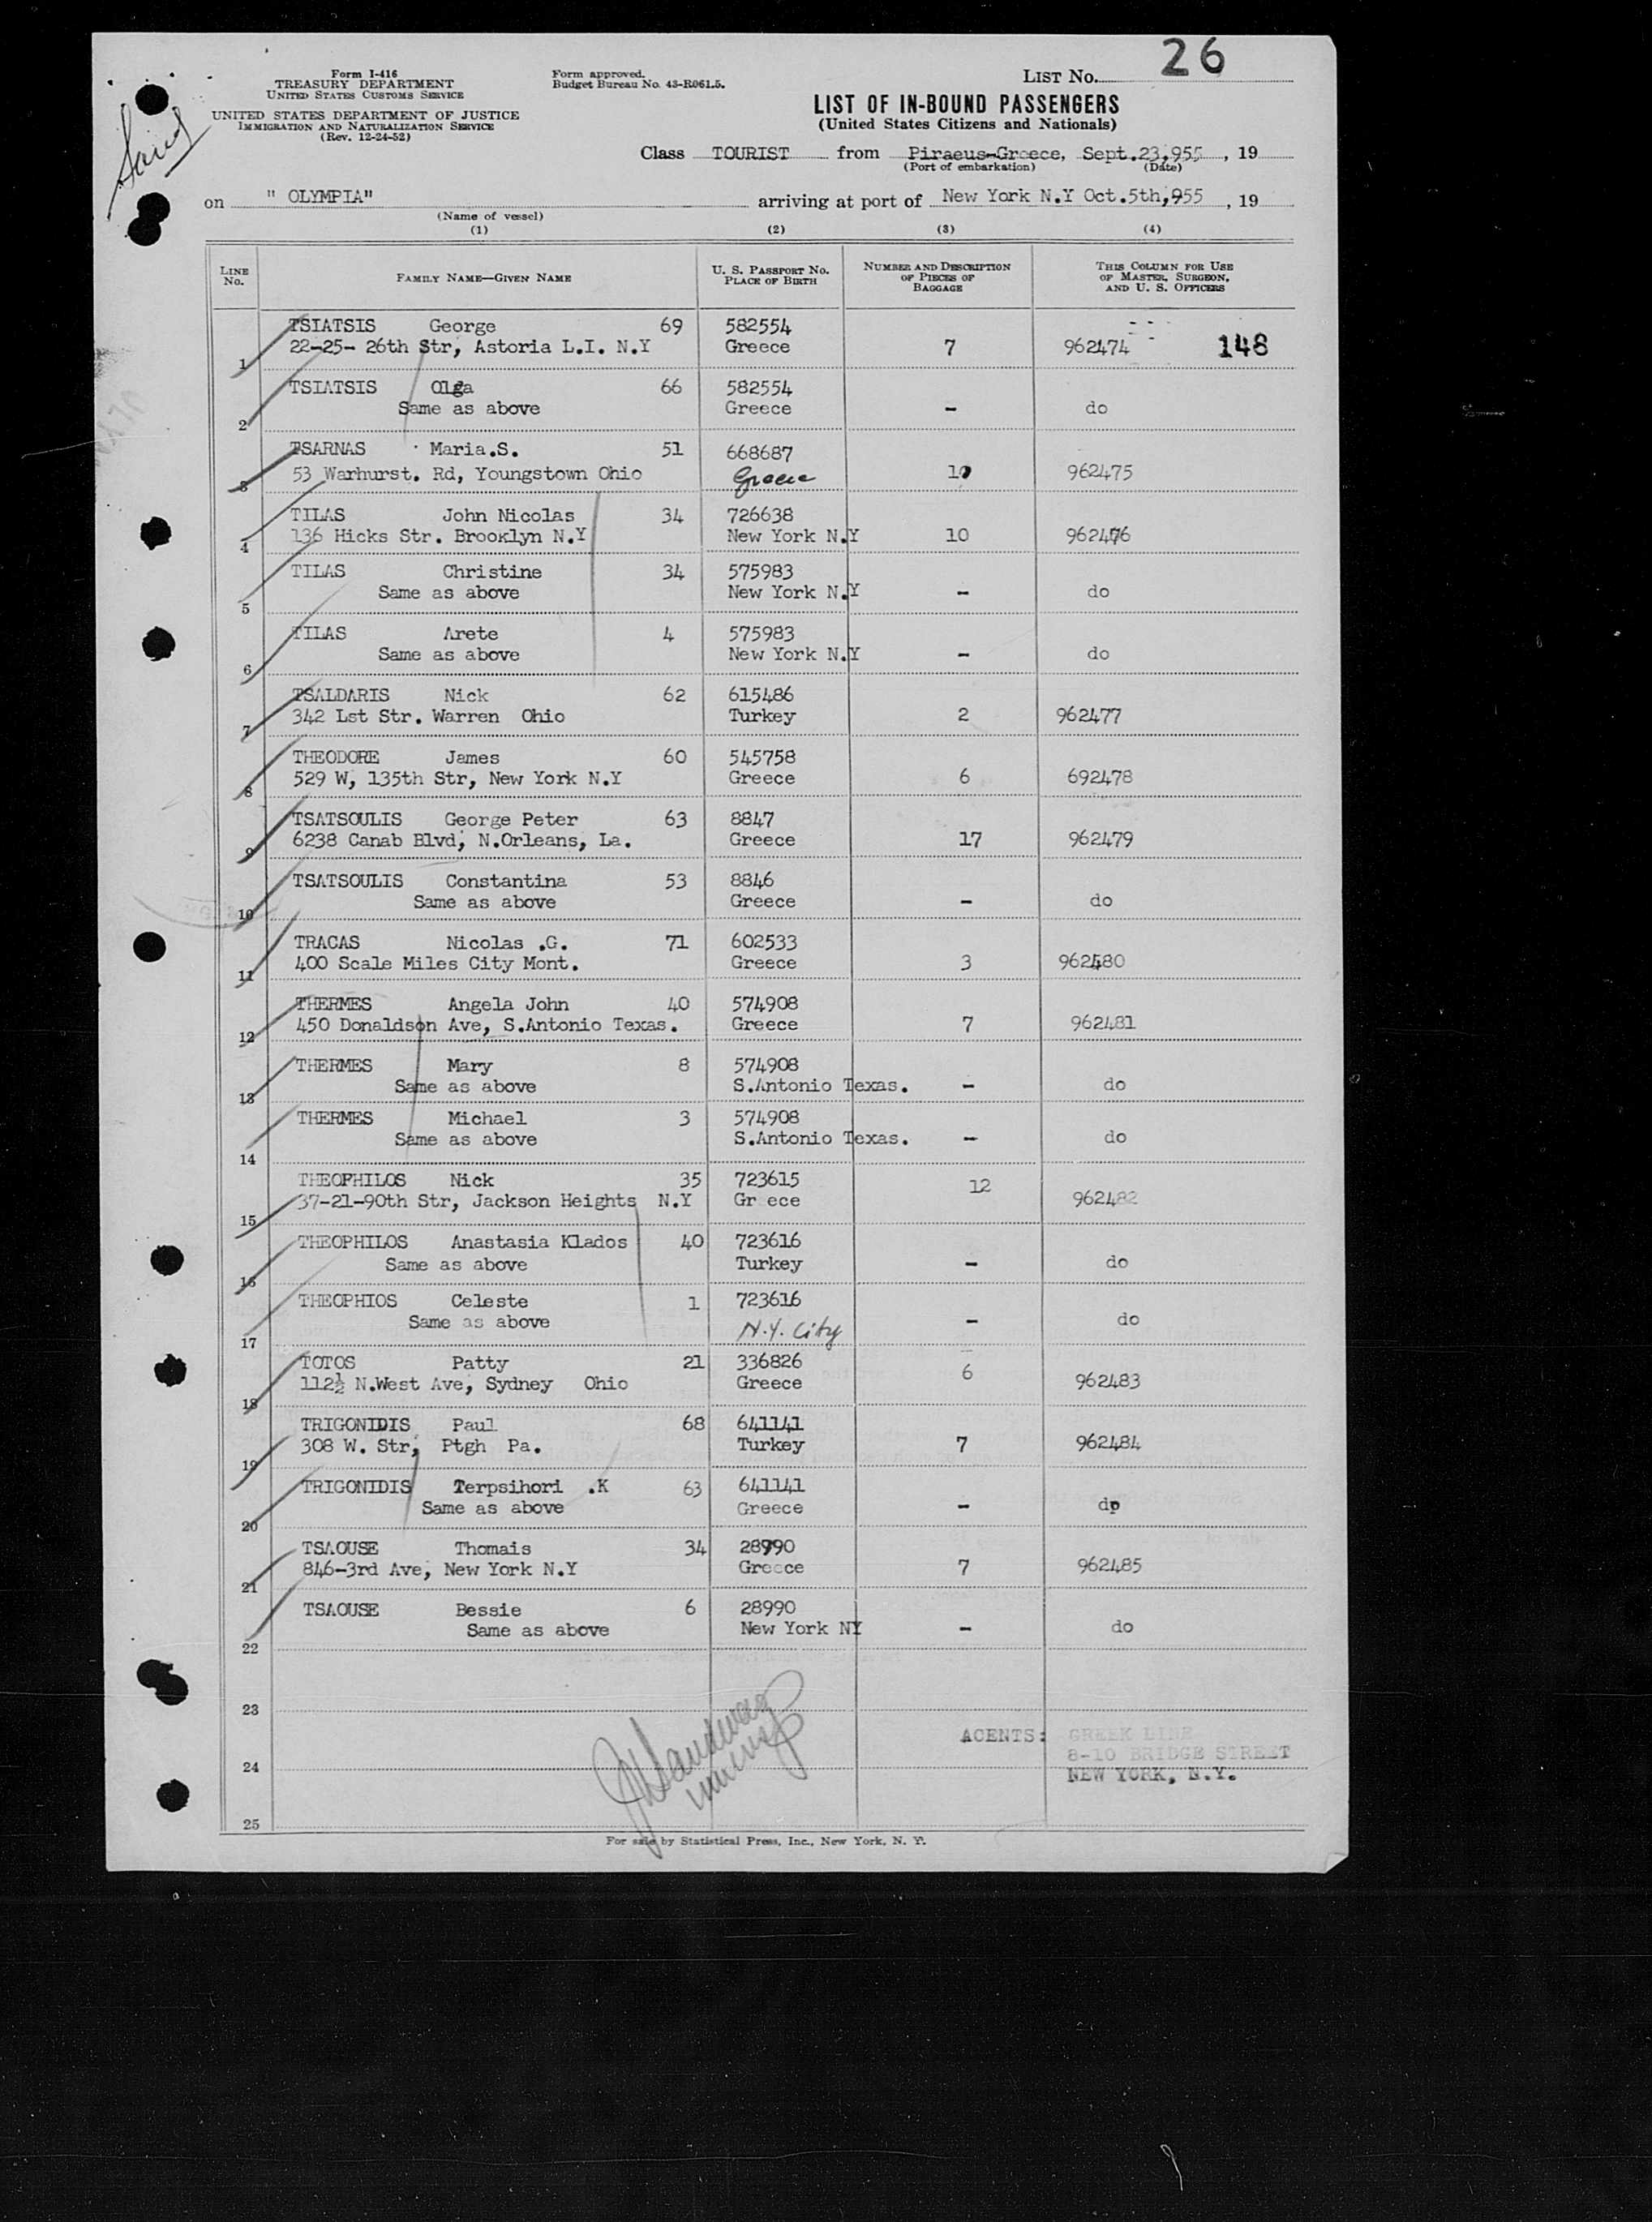 26
Form I-416
TREASURY DEPARTMENT
UNITED STATES CUSTOMS SERVICE
UNITED STATES DEPARTMENT OF JUSTICE
IMMIGRATION AND NATURALIZATION SERVICE
(Rev. 12-24-52)
Form approved.
Budget Bureau No. 43-R061.5.
LIST No.
LIST OF IN-BOUND PASSENGERS
(United States Citizens and Nationals)
Class TOURIST from Piraeus-Greece, Sept.23,955, 19
(Port of embarkation) (Date)
on " OLYMPIA" arriving at port of New York N.Y Oct.5th,955, 19
(Name of vessel)
(1) (2) (3) (4)
LINE No. FAMILY NAME—GIVEN NAME U. S. PASSPORT No. PLACE OF BIRTH NUMBER AND DESCRIPTION OF PIECES OF BAGGAGE THIS COLUMN FOR USE OF MASTER, SURGEON, AND U. S. OFFICERS
TSIATSIS George 69 582554
1 22-25- 26th Str, Astoria L.I. N.Y Greece 7 962474 148
TSIATSIS Olga 66 582554
2 Same as above Greece - do
TSARNAS Maria.S. 51 668687
3 53 Warhurst. Rd, Youngstown Ohio Greece 10 962475
TILAS John Nicolas 34 726638
4 136 Hicks Str. Brooklyn N.Y New York N.Y 10 962476
TILAS Christine 34 575983
5 Same as above New York N.Y - do
TILAS Arete 4 575983
6 Same as above New York N.Y - do
TSALDARIS Nick 62 615486
7 342 Lst Str. Warren Ohio Turkey 2 962477
THEODORE James 60 545758
8 529 W, 135th Str, New York N.Y Greece 6 692478
TSATSOULIS George Peter 63 8847
9 6238 Canab Blvd, N.Orleans, La. Greece 17 962479
TSATSOULIS Constantina 53 8846
10 Same as above Greece - do
TRACAS Nicolas .G. 71 602533
11 400 Scale Miles City Mont. Greece 3 962480
THERMES Angela John 40 574908
12 450 Donaldson Ave, S.Antonio Texas. Greece 7 962481
THERMES Mary 8 574908
13 Same as above S.Antonio Texas. - do
THERMES Michael 3 574908
14 Same as above S.Antonio Texas. - do
THEOPHILOS Nick 35 723615 12
15 37-21-90th Str, Jackson Heights N.Y Gr ece 962482
THEOPHILOS Anastasia Klados 40 723616
16 Same as above Turkey - do
THEOPHIOS Celeste 1 723616
17 Same as above N.Y. City - do
TOTOS Patty 21 336826
18 112½ N.West Ave, Sydney Ohio Greece 6 962483
TRIGONIDIS Paul 68 641141
19 308 W. Str, Ptgh Pa. Turkey 7 962484
TRIGONIDIS Terpsihori .K 63 641141
20 Same as above Greece - do
TSAOUSE Thomais 34 28990
21 846-3rd Ave, New York N.Y Greece 7 962485
TSAOUSE Bessie 6 28990
22 Same as above New York NY - do
23
AGENTS: GREEK LINE
8-10 BRIDGE STREET
24
NEW YORK, N.Y.
25
For sale by Statistical Press, Inc., New York, N. Y.